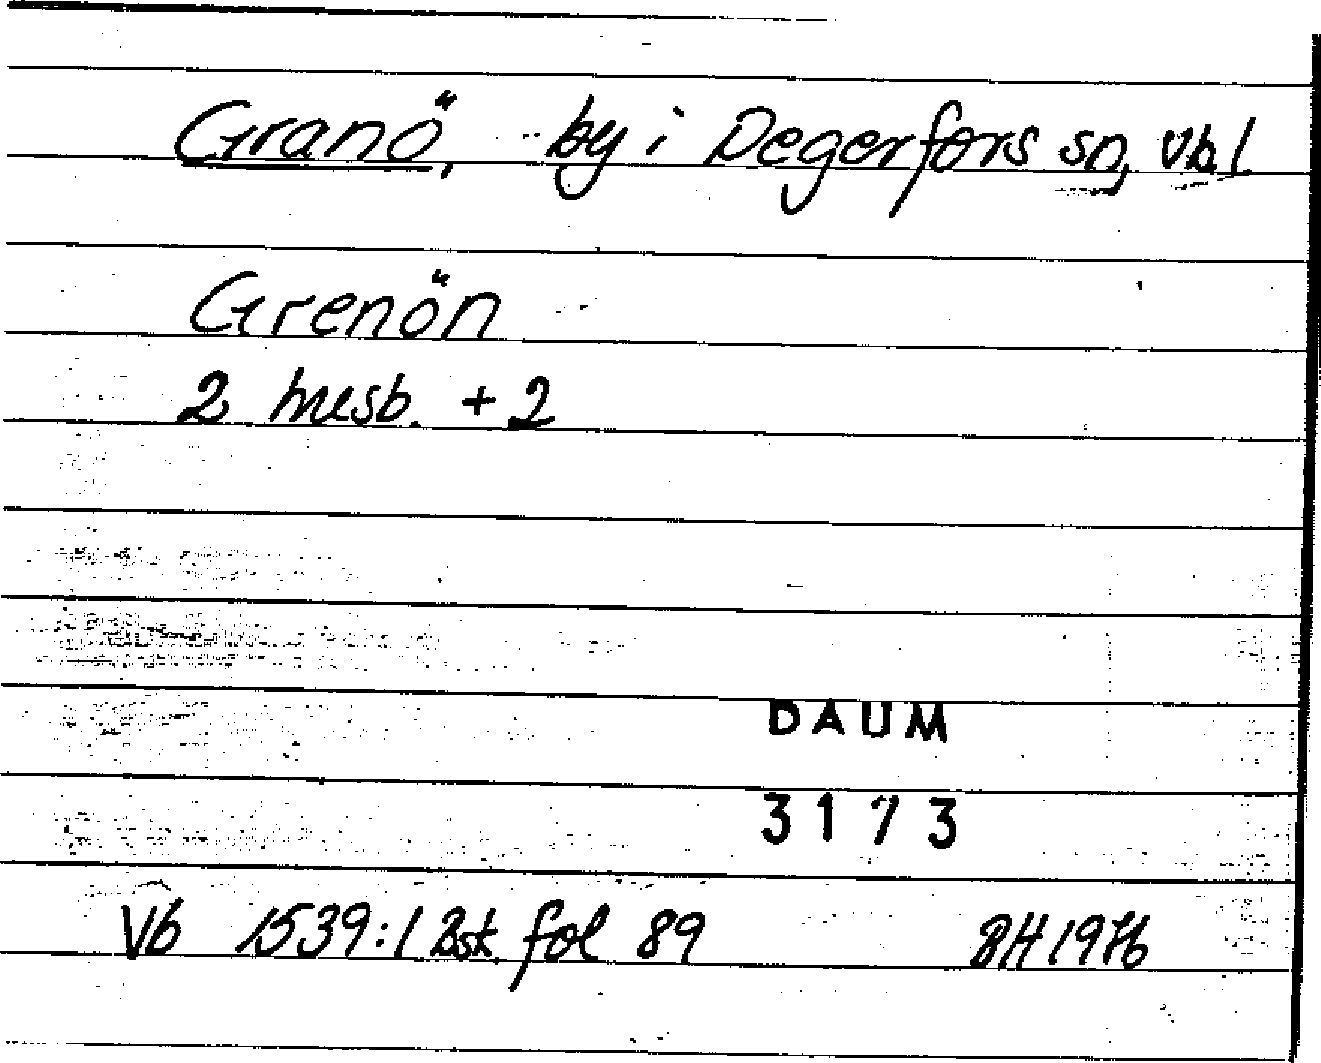 Granö, by i Degerfors sn, Vb.l
Grenön
2 husb. + 2
DAUM
3173
Vb 1539:1 Bst. fol 89 BH 1976